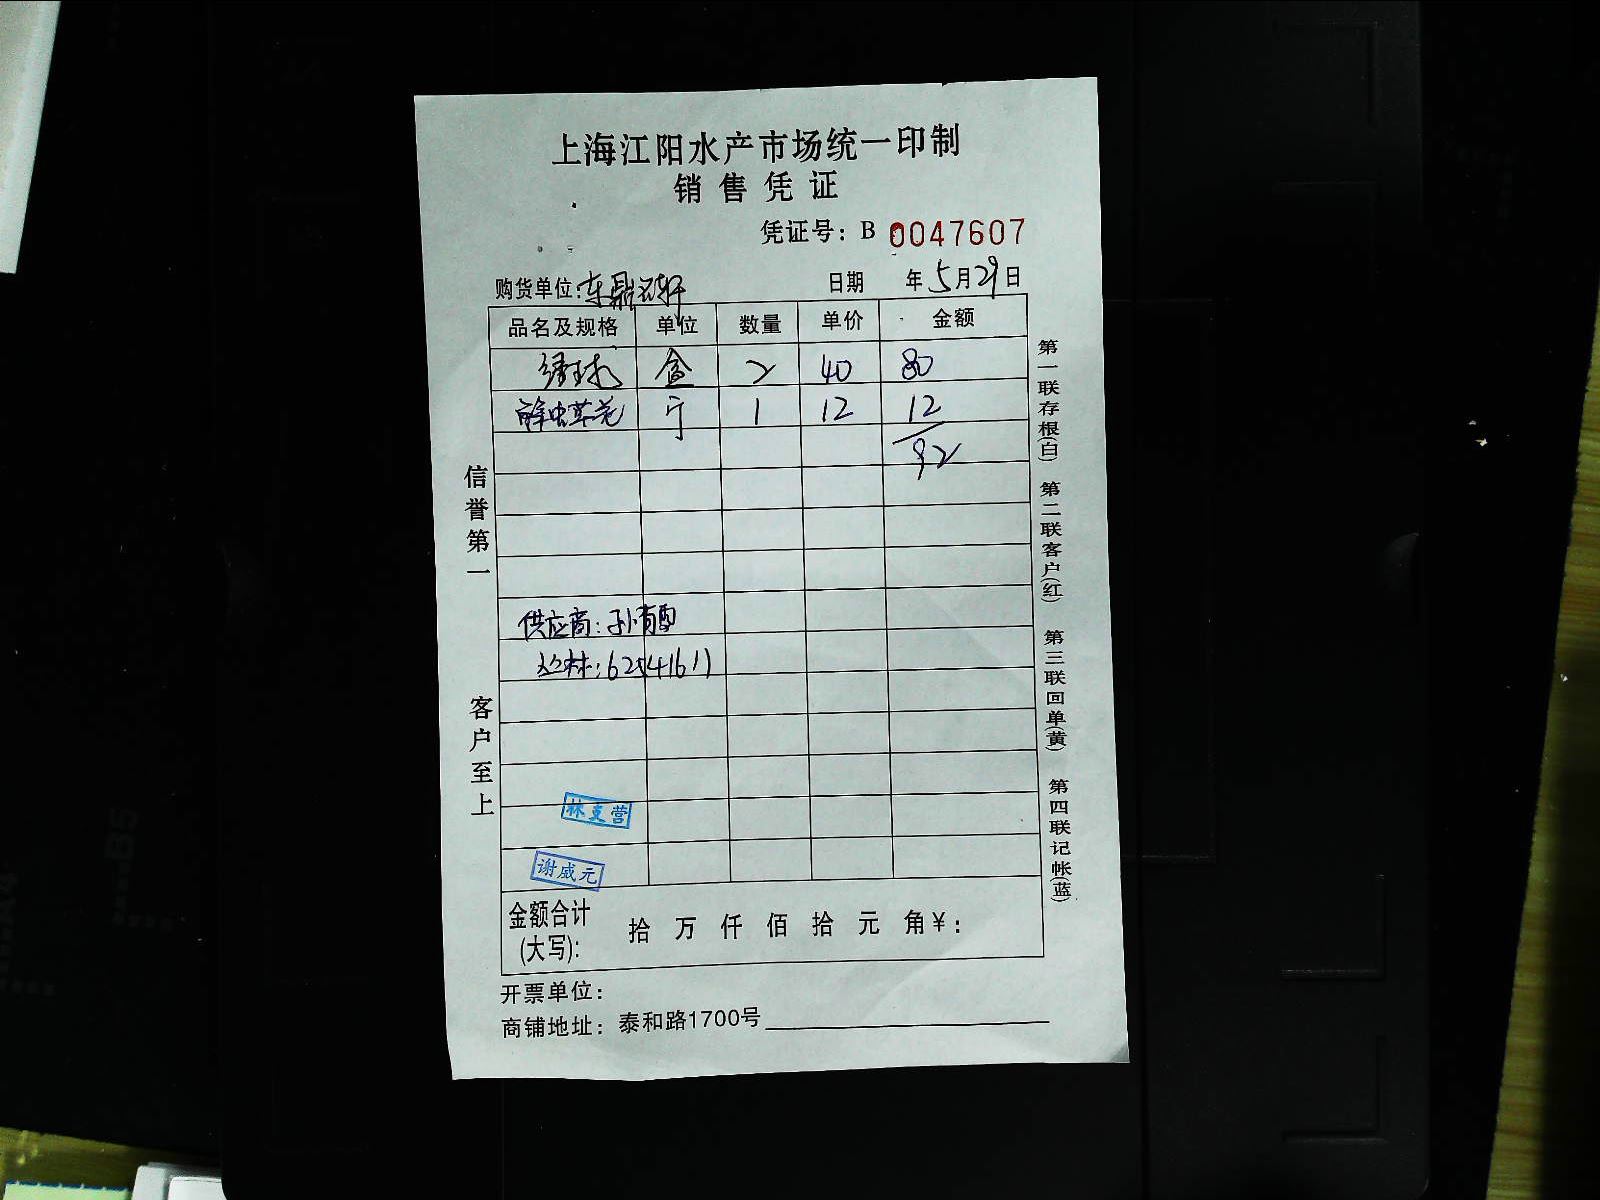 上海江阳水产市场统一印制
销售凭证
凭证号：B 0047607
购货单位：东鼎轩 日期 年5月29日
品名及规格 单位 数量 单价 金额
绿球 盒 2 40 80
鲜虫草花 斤 1 12 12
92
供应商：孙育雷
丛林：62541611
林支营
谢成元
金额合计(大写)： 拾 万 仟 佰 拾 元 角 ¥：
开票单位：
商铺地址：泰和路1700号
信誉第一
客户至上
第一联存根(白) 第二联客户(红) 第三联回单(黄) 第四联记帐(蓝)
B5
A4